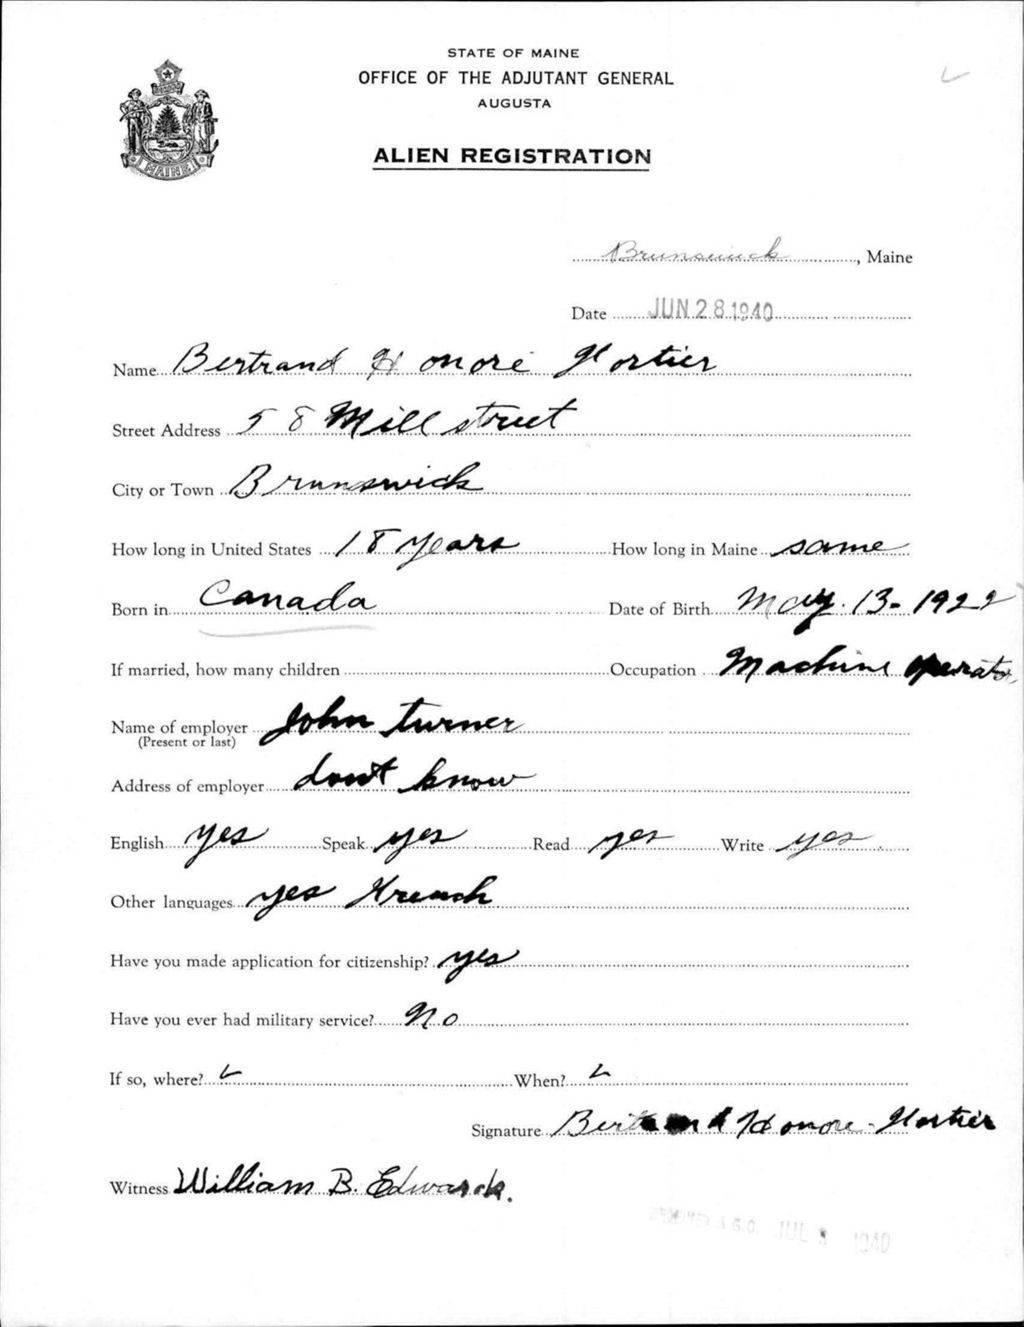 STATE OF MAINE
OFFICE OF THE ADJUTANT GENERAL
AUGUSTA
ALIEN REGISTRATION
MAINE
Brunswick, Maine
Date JUN 28 1940
Name Bertrand Honoré Fortier
Street Address 58 Mill street
City or Town Brunswick
How long in United States 18 years How long in Maine same
Born in Canada Date of Birth May. 13-1922
If married, how many children Occupation Machine operator
Name of employer John turner
(Present or last)
Address of employer dont know
English yes Speak yes Read yes Write yes
Other languages yes French
Have you made application for citizenship? yes
Have you ever had military service? No
If so, where? When?
Signature Bertrand Honore-Fortier
Witness William B. Edwards.
A.G.O. JUL 1940